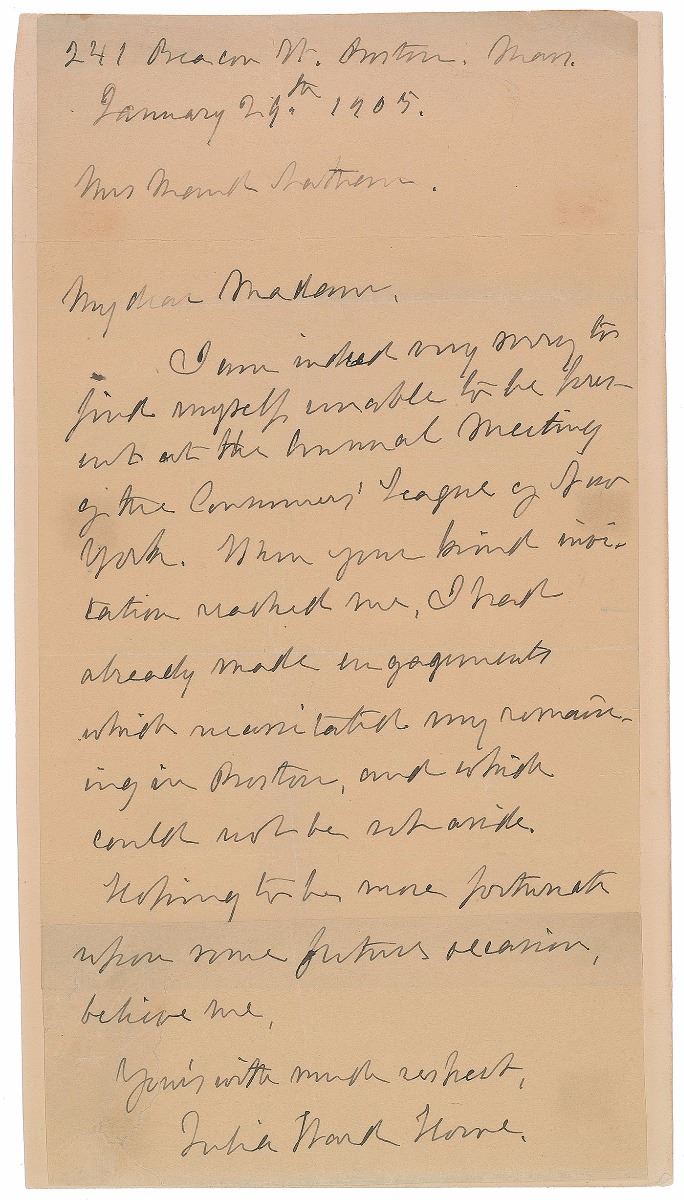 241 Beacon St. Boston. Mass.
January 29.th 1905.
Mrs Maud Nathan.
My dear Madam,
I am indeed very sorry to
find myself unable to be pres-
ent at the Annual Meeting
of the Consumers' League of New
York. When your kind invi-
tation reached me, I had
already made engagements
which necessitated my remain-
ing in Boston, and which
could not be set aside.
Hoping to be more fortunate
upon some future occasion,
believe me,
Yours with much respect,
Julia Ward Howe.